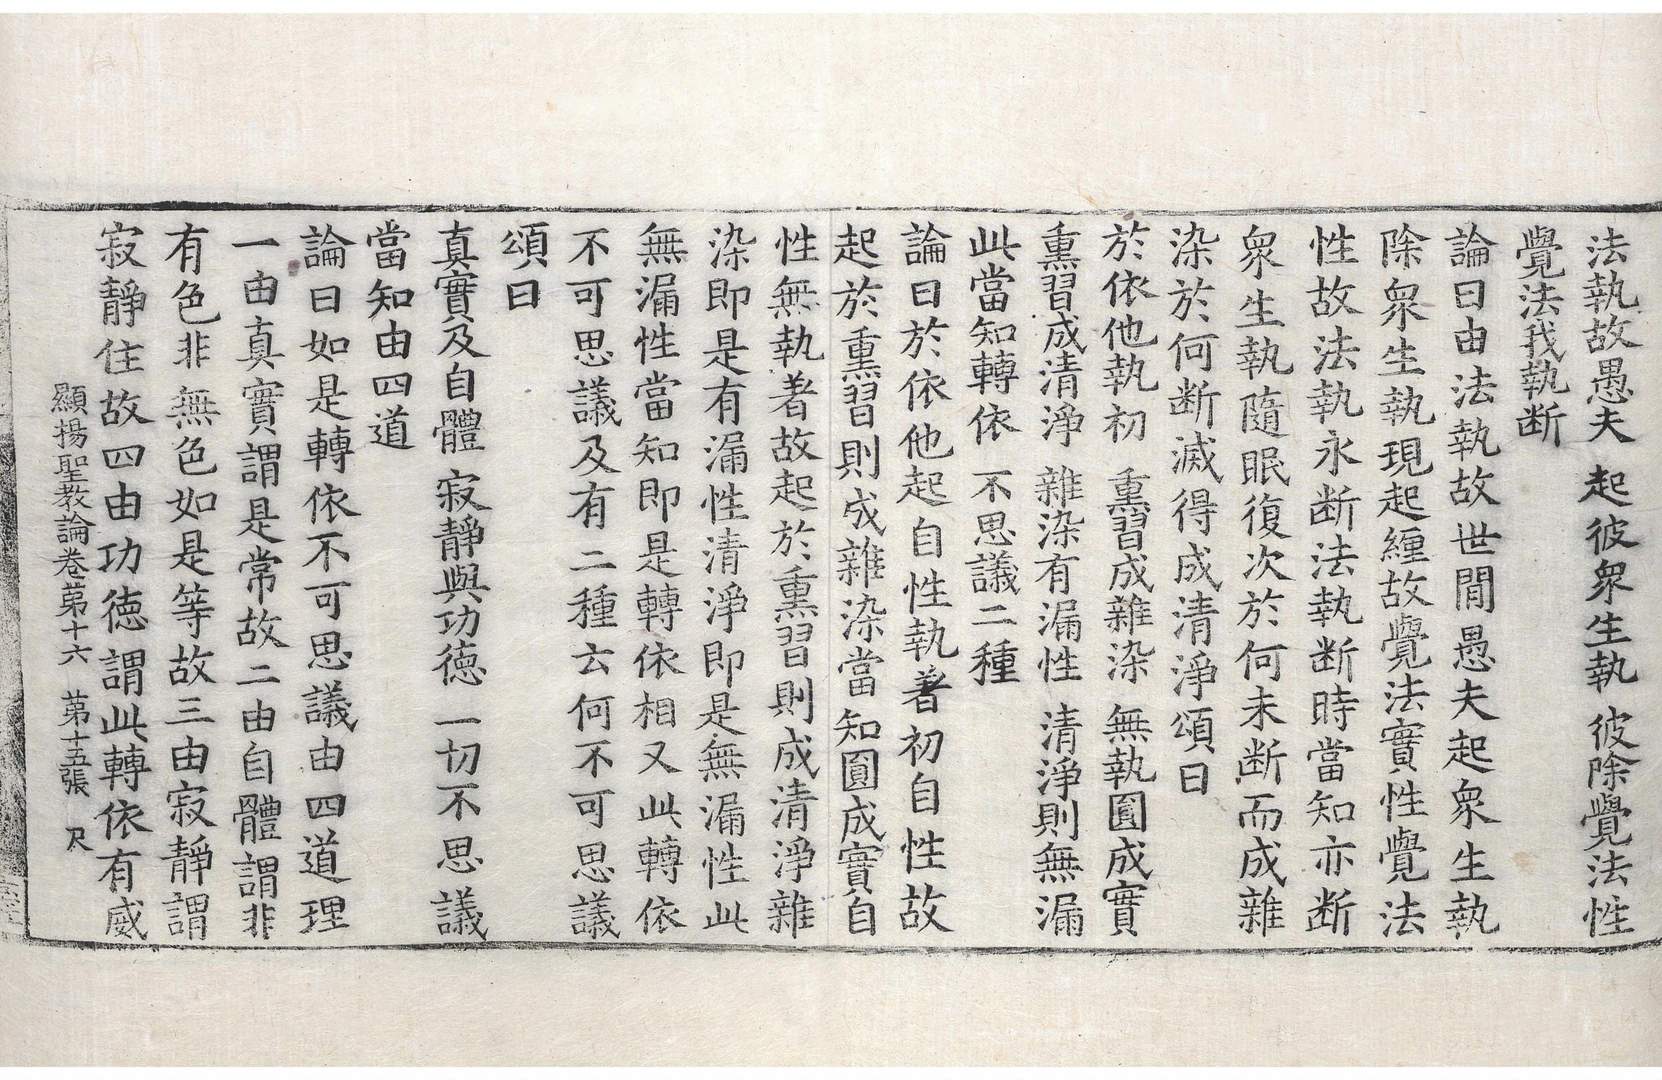 法執故愚夫　起彼衆生執　彼除覺法性
覺法我執断
論曰由法執故世間愚夫起衆生執
除衆生執現起纒故覺法實性覺法
性故法執永断法執断時當知亦断
衆生執隨眠復次於何未断而成雜
染於何断滅得成清淨頌曰
於依他執初　熏習成雜染　無執圓成實
熏習成清淨　雜染有漏性　清淨則無漏
此當知轉依　不思議二種
論曰於依他起自性執著初自性故
起於熏習則成雜染當知圓成實自
性無執著故起於熏習則成清淨雜
染即是有漏性清淨即是無漏性此
無漏性當知即是轉依相又此轉依
不可思議及有二種云何不可思議
頌曰
真實及自體　寂靜與功德　一切不思議
當知由四道
論曰如是轉依不可思議由四道理
一由真實謂是常故二由自體謂非
有色非無色如是等故三由寂靜謂
寂靜住故四由功徳謂此轉依有威
顯揚聖教論卷第十六　第十五張　尺